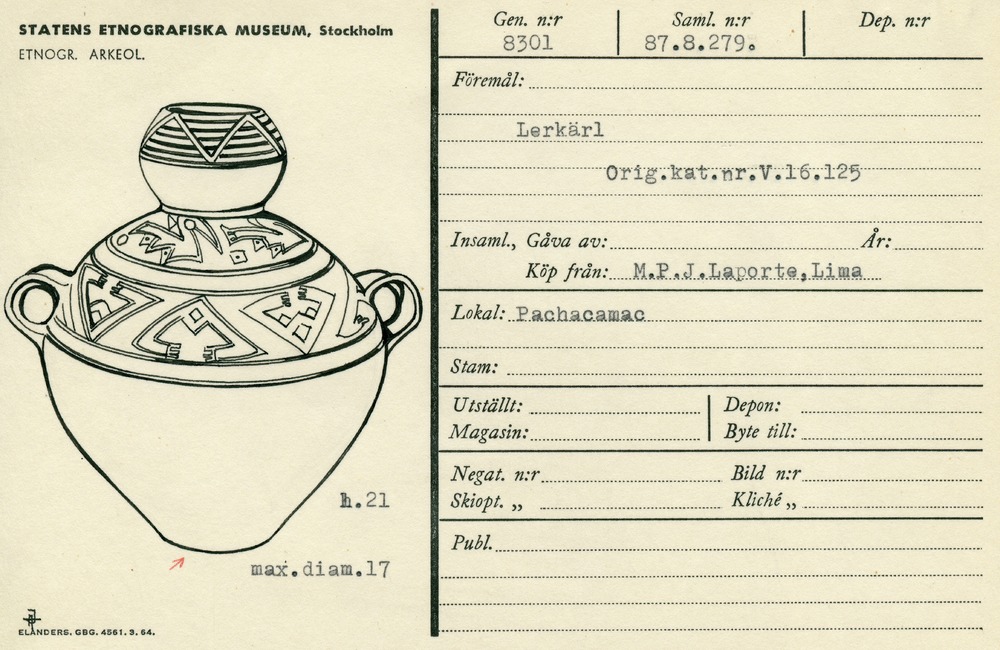 STATENS ETNOGRAFISKA MUSEUM, Stockholm
ETNOGR. ARKEOL.
h.21
max.diam.17
ELANDERS. GBG. 4561. 3. 64.
Gen. n:r Saml. n:r Dep. n:r
8301 87.8.279.
Föremål:
Lerkärl
Orig.kat.nr.V.16.125
Insaml., Gåva av: År:
Köp från: M.P.J.Laporte,Lima
Lokal: Pachacamac
Stam:
Utställt: Depon:
Magasin: Byte till:
Negat. n:r Bild n:r
Skiopt. „ Kliché „
Publ.